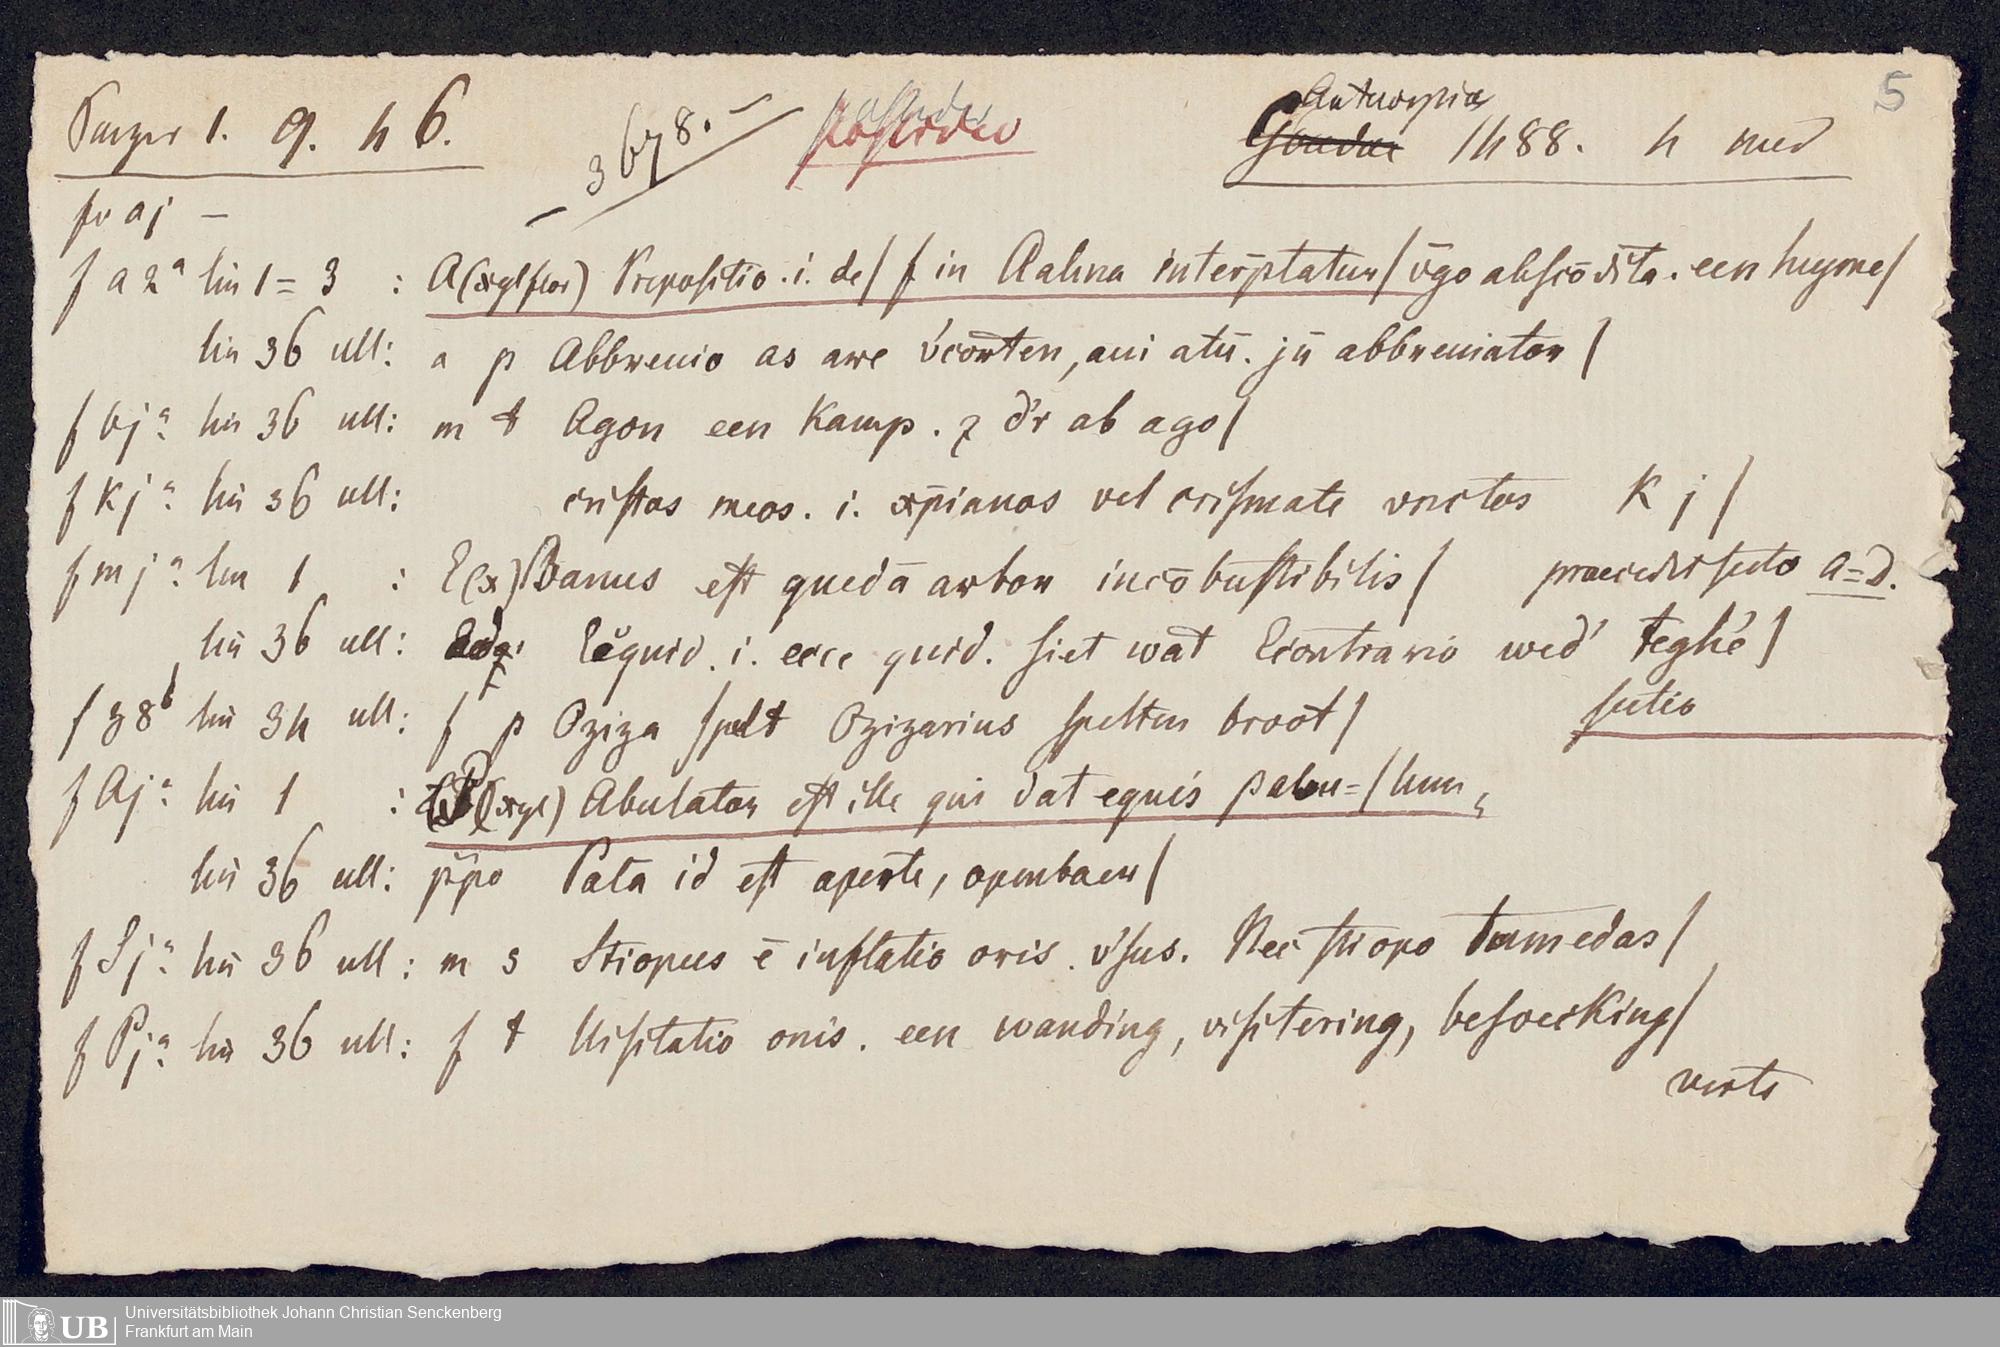 Panzer 1. 9. 46.
3678.
Antwerpiae
Goudae 1488. 4 med
5
fo aj –
f a 2ª lin 1=3 : A(xylflor) Prepositio . i. de/ f in Aalma interp̄tatur/ v̄go abscō dita . een huyme/
lin 36 ult: a p Abbreuio as are v'corten, aui atū. jū abbreuiator/
f bjª: lin 36 ult: m t Agon een kamp . z d'r ab ago/
f Kjª: lin 36 ult: cristos meos . i. xp̄ianos vel crismate vnctos K j/
f mjª: lin 1 : E(x)Banus est quedā arbor incōbustibilis/ praecedit scuto a=d.
lin 36 ult: Ecquid . i. ecce quid. siet wat Econtrario wed' teghē/
f 38b lin 34 ult: f p Oziza spelt Ozizarius spelten broot/ scutio
f Ajª: lin 1 : P(xyl) Abulator est ille qui dat equis pabu=/lum
lin 36 ult: p̄po Pata id est aperte, openbaer/
f Sjª: lin 36 ult: m s Stiopus ē inflatio oris . v'sus. Nec stiopo tumedas/
f Pjª: lin 36 ult: f t Uisitatio onis . een wanding, visitering, besoecking/
verte
Universitätsbibliothek Johann Christian Senckenberg
Frankfurt am Main
UB